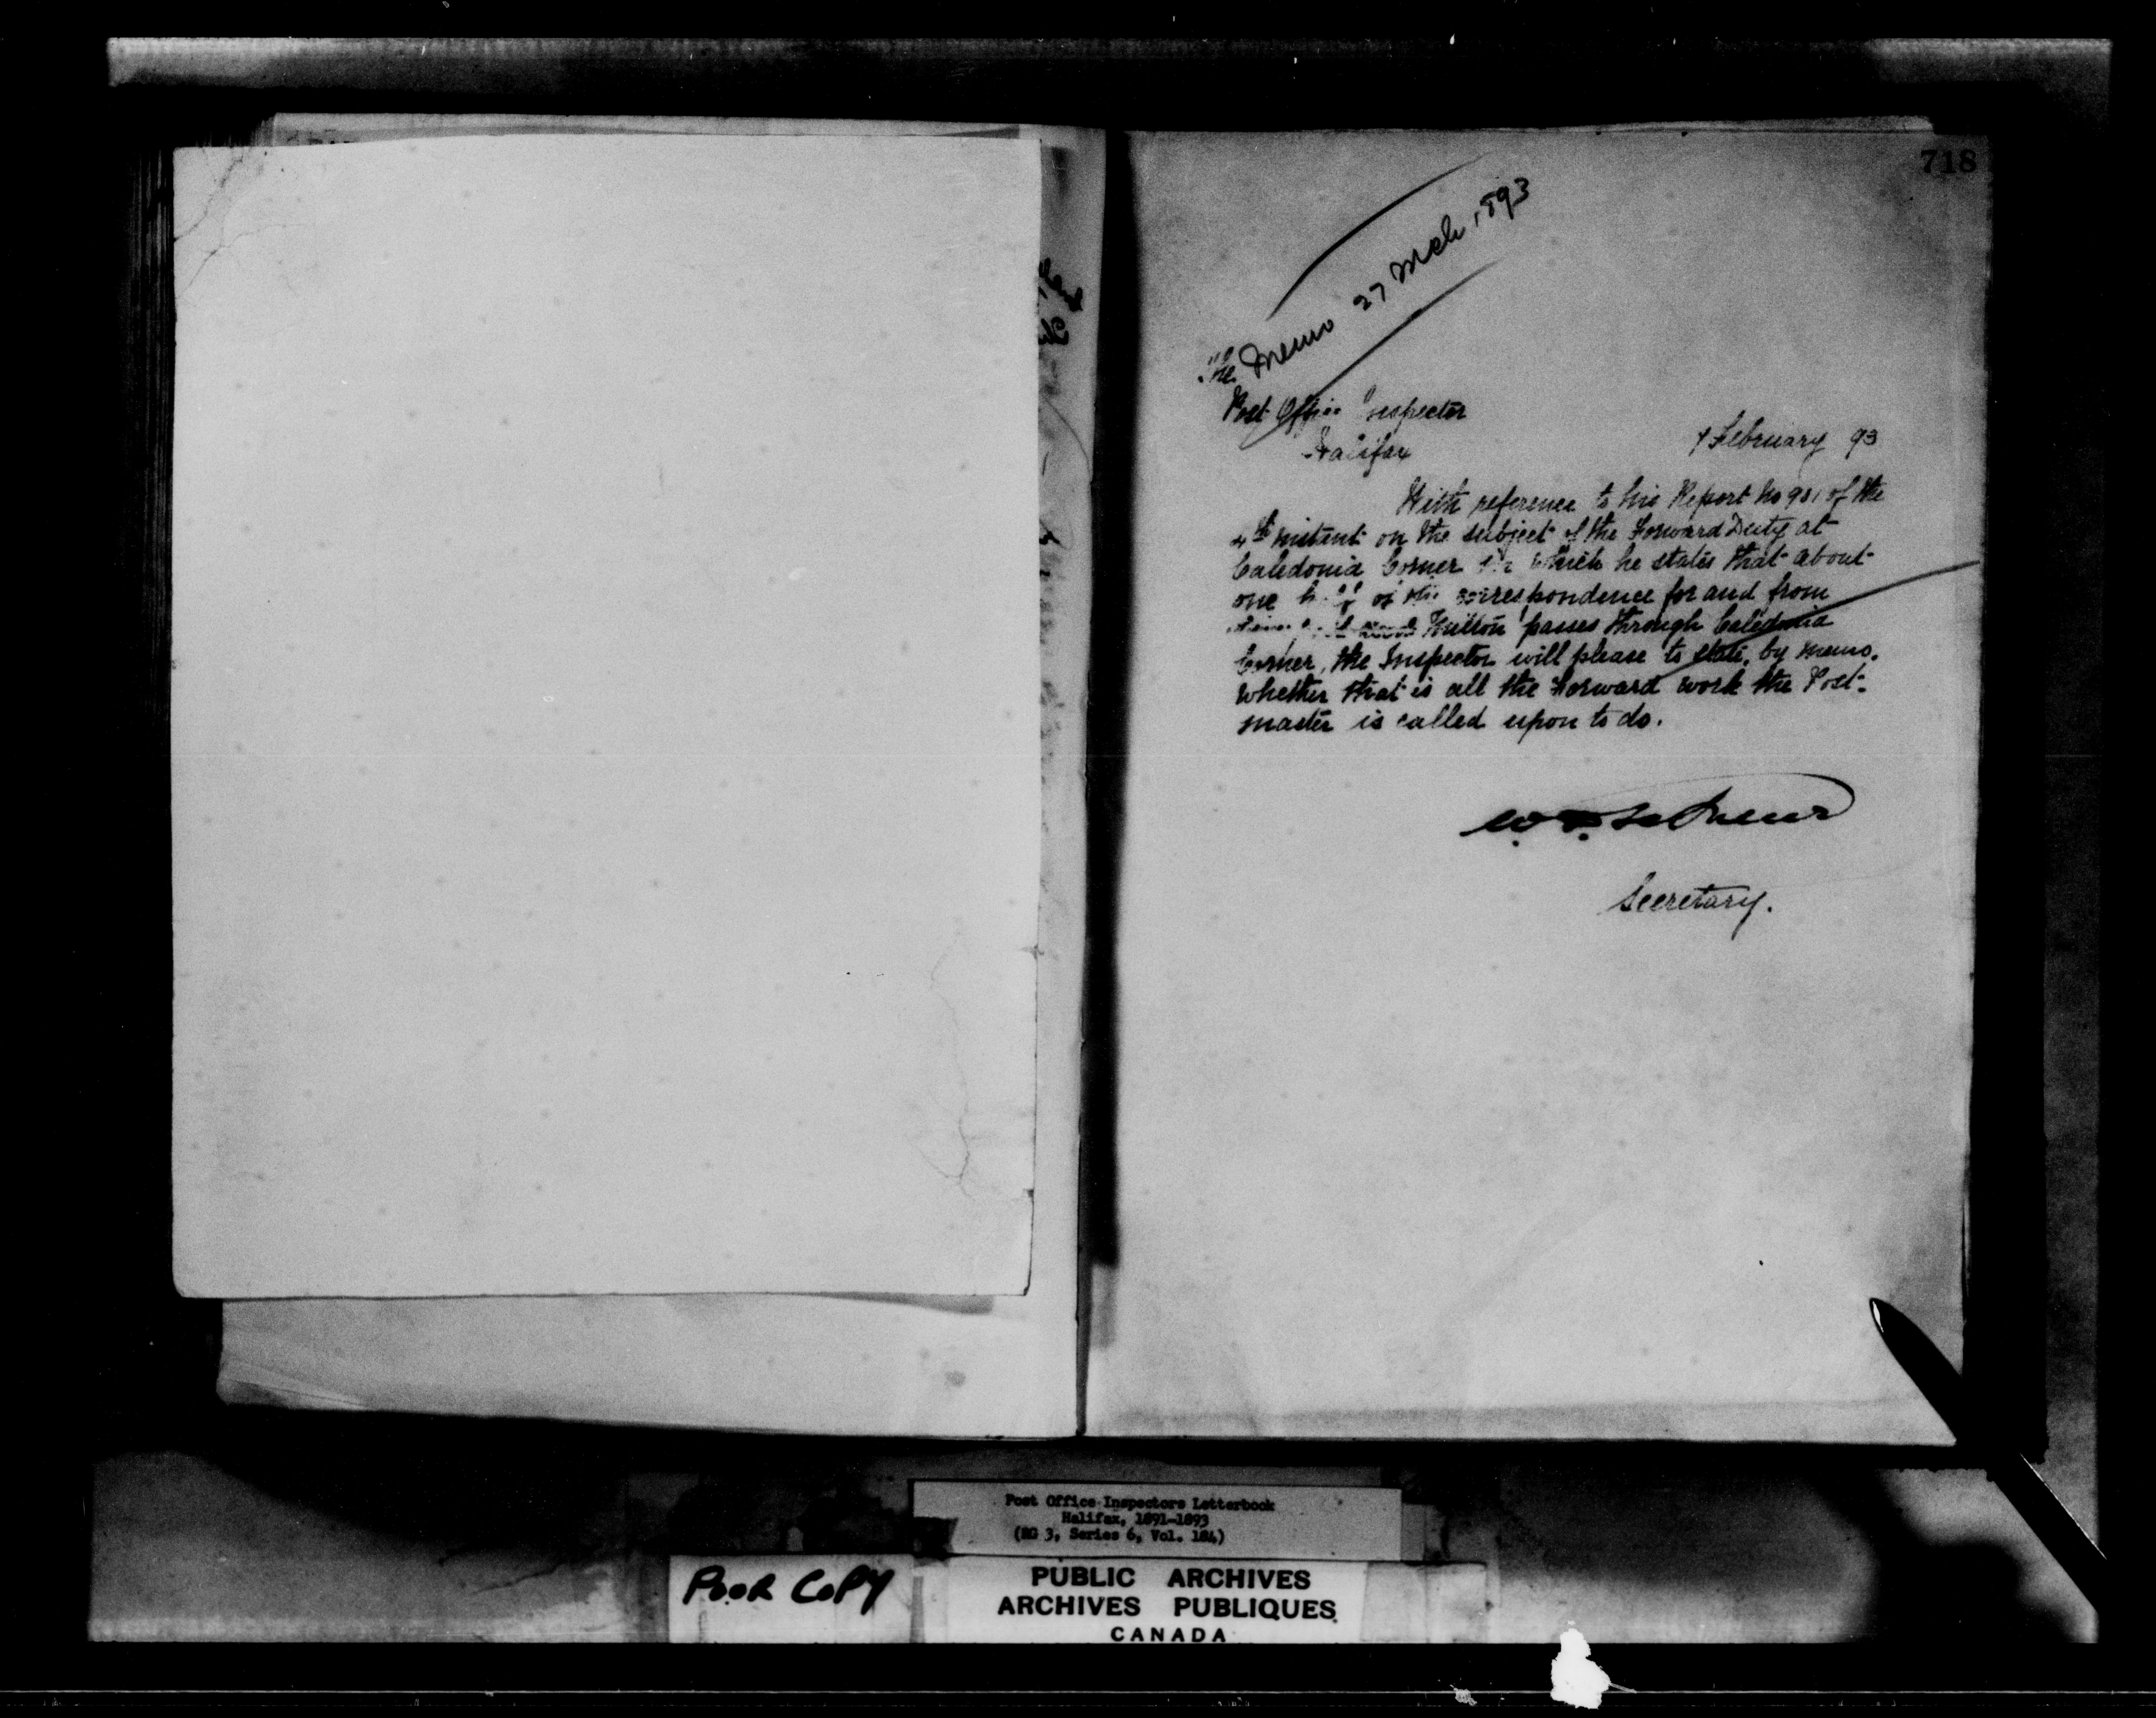 718
Memo 27 Mch 1893
The
Post Office Inspector
Halifax
7 February 93
With reference to his Report No 981 of the
4th instant on the subject of the Forward Duty at
Caledonia Corner in which he states that about
one half of the correspondence for and from
passes through Caledonia
Corner, the Inspector will please to state, by memo.
whether that is all the Forward work the Post-
master is called upon to do.
Secretary.
Post Office Inspectors Letterbook
Halifax, 1891-1893
(RG 3, Series 6, Vol. 184)
POOR COPY
PUBLIC ARCHIVES
ARCHIVES PUBLIQUES
CANADA